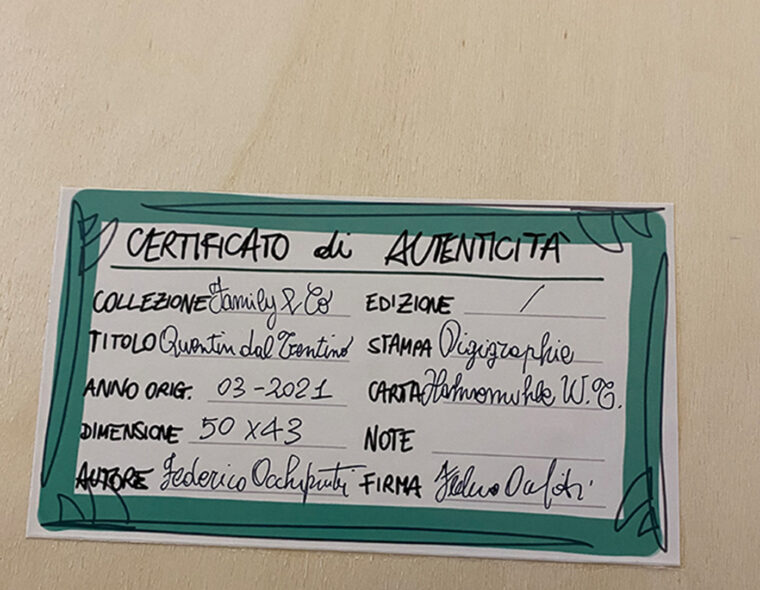 CERTIFICATO di AUTENTICITÀ
COLLEZIONE Family & Co EDIZIONE /
TITOLO Quentin dal Trentino STAMPA Digigraphie
ANNO ORIG. 03-2021 CARTA Hahnemuhle W.T.
DIMENSIONE 50 x 43 NOTE
AUTORE Federico Occhipinti FIRMA